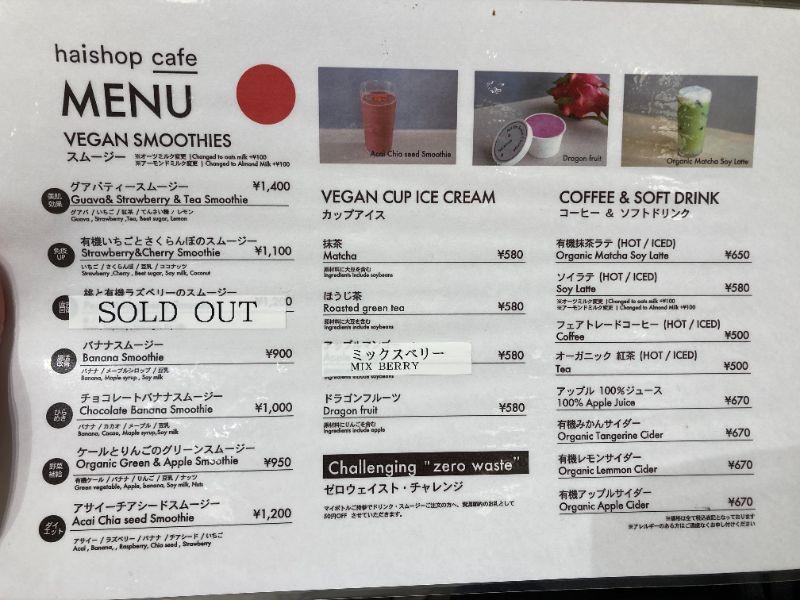 haishop cafe
MENU
VEGAN SMOOTHIES
スムージー
※オーツミルク変更 | Changed to oats milk +¥100
※アーモンドミルク変更 | Changed to Almond Milk +¥100
美肌効果
グアバティースムージー
¥1,400
Guava& Strawberry & Tea Smoothie
グアバ / いちご / 紅茶 / てんさい糖 / レモン
Guava , Strawberry ,Tea, Beet sugar, Lemon
免疫UP
有機いちごとさくらんぼのスムージー
Strawberry&Cherry Smoothie
¥1,100
いちご / さくらんぼ / 豆乳 / ココナッツ
Strawberry ,Cherry , Beet sugar, Soy milk, Coconut
桃と有機ラズベリーのスムージー
SOLD OUT
バナナスムージー
Banana Smoothie
¥900
バナナ / メープルシロップ / 豆乳
Banana, Maple syrup , Soy milk
ひらめき
チョコレートバナナスムージー
Chocolate Banana Smoothie
¥1,000
バナナ / カカオ / メープル / 豆乳
Banana, Cacao, Maple syrup,Soy milk
野菜補給
ケールとりんごのグリーンスムージー
Organic Green & Apple Smoothie
¥950
有機ケール / バナナ / りんご / 豆乳 / ナッツ
Green vegetable, Apple, banana, Soy milk, Nuts
ダイエット
アサイーチアシードスムージー
Acai Chia seed Smoothie
¥1,200
アサイー / ラズベリー / バナナ / チアシード / いちご
Acai , Banana, , Raspberry, Chia seed , Strawberry
Acai Chia seed Smoothie
Dragon fruit
Organic Matcha Soy Latte
VEGAN CUP ICE CREAM
カップアイス
抹茶
Matcha
¥580
原材料に大豆を含む
Ingredients include soybeans
ほうじ茶
Roasted green tea
¥580
原材料に大豆を含む
Ingredients include soybeans
ミックスベリー
MIX BERRY
¥580
Ingredients include soybeans
ドラゴンフルーツ
Dragon fruit
¥580
原材料にりんごを含む
Ingredients include apple
Challenging "zero waste"
ゼロウェイスト・チャレンジ
マイボトルご持参でドリンク・スムージーご注文の方へ、資源節約のお礼として
50円OFF させていただきます。
COFFEE & SOFT DRINK
コーヒー & ソフトドリンク
有機抹茶ラテ (HOT / ICED)
Organic Matcha Soy Latte
¥650
ソイラテ (HOT / ICED)
Soy Latte
¥580
※オーツミルク変更 | Changed to oats milk +¥100
※アーモンドミルク変更 | Changed to Almond Milk +¥100
フェアトレードコーヒー (HOT / ICED)
Coffee
¥500
オーガニック 紅茶 (HOT / ICED)
Tea
¥500
アップル 100%ジュース
100% Apple Juice
¥670
有機みかんサイダー
Organic Tangerine Cider
¥670
有機レモンサイダー
Organic Lemmon Cider
¥670
有機アップルサイダー
Organic Apple Cider
¥670
※価格は全て税込表記となっております
※アレルギーのある方はご遠慮なくお申し付けください